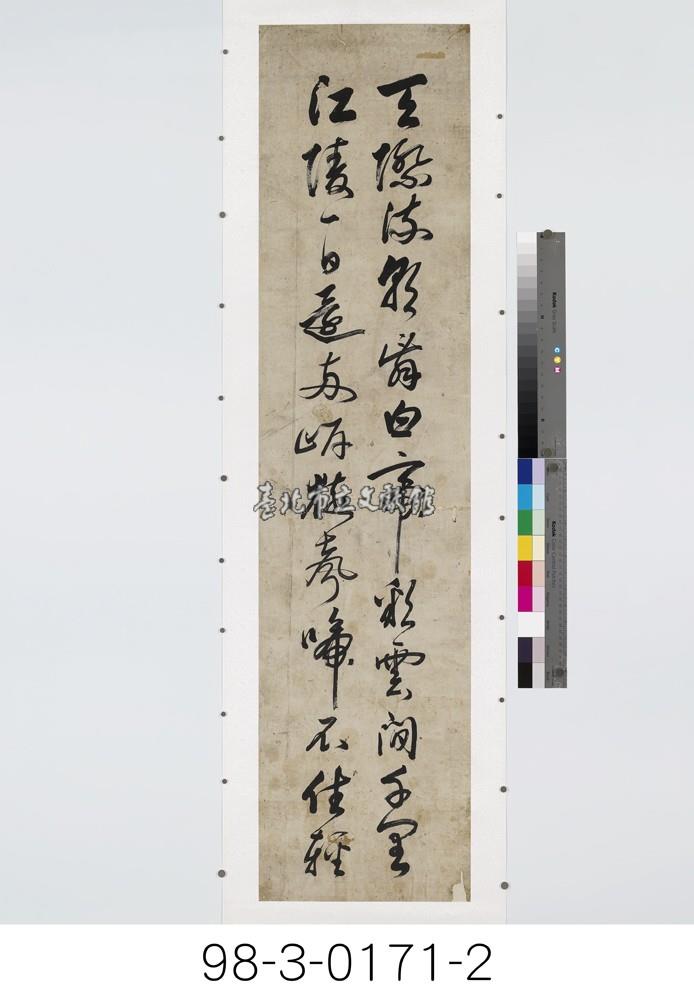 天際流朝辭白帝彩雲間千里
江陵一日還兩岸猿聲啼不住輕
臺北市立文獻館
Kodak Gray Scale
C Y M
Kodak Color Control Patches
98-3-0171-2